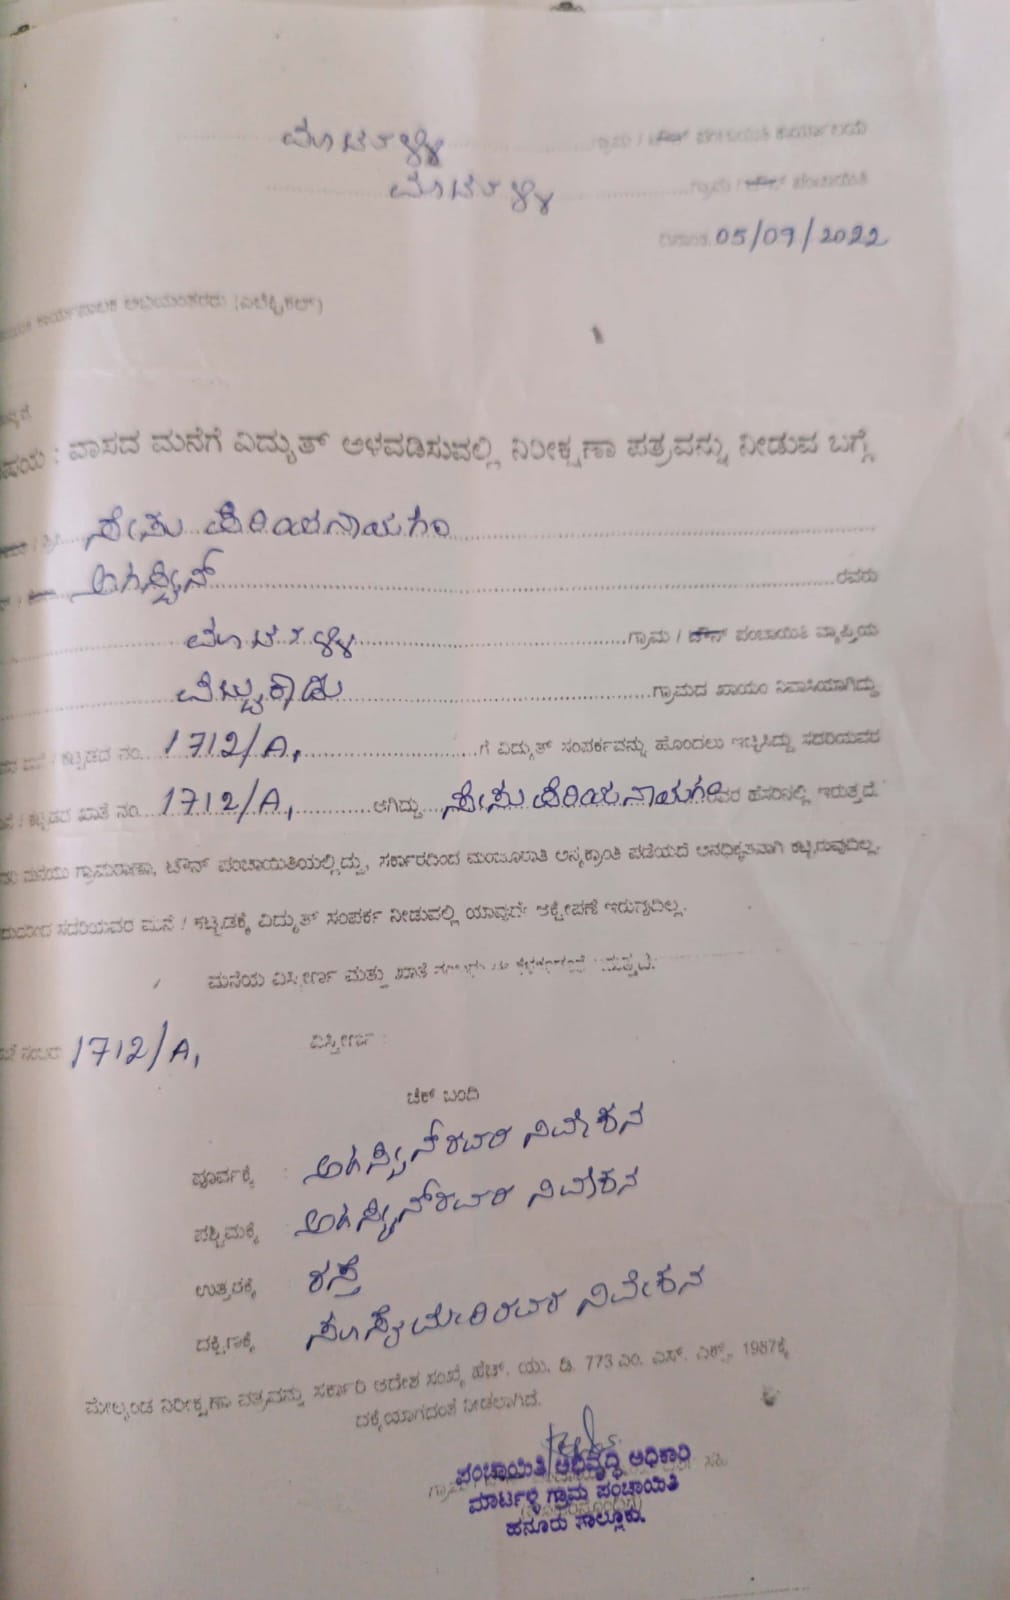 ಮಾರ್ಟಳ್ಳಿ ಗ್ರಾಮ / ಟೌನ್ ಪಂಚಾಯಿತಿ ಕಾರ್ಯಾಲಯ
ಮಾರ್ಟಳ್ಳಿ ಗ್ರಾಮ / ಟೌನ್ ಪಂಚಾಯಿತಿ
ದಿನಾಂಕ. 05/09/2022
ಕಾರ್ಯಪಾಲಕ ಅಭಿಯಂತರರು (ಎಲೆಕ್ಟ್ರಿಕಲ್)
: ವಾಸದ ಮನೆಗೆ ವಿದ್ಯುತ್ ಅಳವಡಿಸುವಲ್ಲಿ ನಿರೀಕ್ಷಣಾ ಪತ್ರವನ್ನು ನೀಡುವ ಬಗ್ಗೆ
/ ಶ್ರೀ. ಪೆರಿಯನಾಯಗಂ
ಅಗಸ್ಟಿನ್ ರವರು
ಮಾರ್ಟಳ್ಳಿ ಗ್ರಾಮ / ಟೌನ್ ಪಂಚಾಯಿತಿ ವ್ಯಾಪ್ತಿಯ
ವೆಟ್ಟುಕಾಡು ಗ್ರಾಮದ ಖಾಯಂ ನಿವಾಸಿಯಾಗಿದ್ದು
/ ಕಟ್ಟಡದ ನಂ. 1712/A, ಗೆ ವಿದ್ಯುತ್ ಸಂಪರ್ಕವನ್ನು ಹೊಂದಲು ಇಚ್ಛಿಸಿದ್ದು ಸದರಿಯವರ
/ ಕಟ್ಟಡದ ಖಾತೆ ನಂ. 1712/A, ಆಗಿದ್ದು ಪೆರಿಯನಾಯಗಂ ರವರ ಹೆಸರಿನಲ್ಲಿ ಇರುತ್ತದೆ.
ಮನೆಯು ಗ್ರಾಮಠಾಣಾ, ಟೌನ್ ಪಂಚಾಯಿತಿಯಲ್ಲಿದ್ದು, ಸರ್ಕಾರದಿಂದ ಮಂಜೂರಾತಿ ಅನ್ಯಕ್ರಾಂತಿ ಪಡೆಯದೆ ಅನಧಿಕೃತವಾಗಿ ಕಟ್ಟಿರುವುದಿಲ್ಲ.
ಸದರಿಯವರ ಮನೆ / ಕಟ್ಟಡಕ್ಕೆ ವಿದ್ಯುತ್ ಸಂಪರ್ಕ ನೀಡುವಲ್ಲಿ ಯಾವುದೇ ಆಕ್ಷೇಪಣೆ ಇರುವುದಿಲ್ಲ.
ಮನೆಯ ವಿಸ್ತೀರ್ಣ ಮತ್ತು ಖಾತೆ
1712/A, ವಿಸ್ತೀರ್ಣ :
ಚೆಕ್ ಬಂದಿ
ಪೂರ್ವಕ್ಕೆ : ಅಗಸ್ಟಿನ್ ರವರ ನಿವೇಶನ
ಪಶ್ಚಿಮಕ್ಕೆ ಅಗಸ್ಟಿನ್ ರವರ ನಿವೇಶನ
ಉತ್ತರಕ್ಕೆ ರಸ್ತೆ
ದಕ್ಷಿಣಕ್ಕೆ ನಿವೇಶನ
ಮೇಲ್ಕಂಡ ನಿರೀಕ್ಷಣಾ ಪತ್ರವನ್ನು ಸರ್ಕಾರಿ ಆದೇಶ ಸಂಖ್ಯೆ ಹೆಚ್. ಯು. ಡಿ. 773 ಎಂ. ಎಸ್. ಎಕ್ಸ್. 1987ಕ್ಕೆ
ದಕ್ಕೆಯಾಗದಂತೆ ನೀಡಲಾಗಿದೆ.
ಪಂಚಾಯಿತಿ ಅಭಿವೃದ್ಧಿ ಅಧಿಕಾರಿ
ಮಾರ್ಟಳ್ಳಿ ಗ್ರಾಮ ಪಂಚಾಯಿತಿ
ಹನೂರು ತಾಲ್ಲೂಕು.